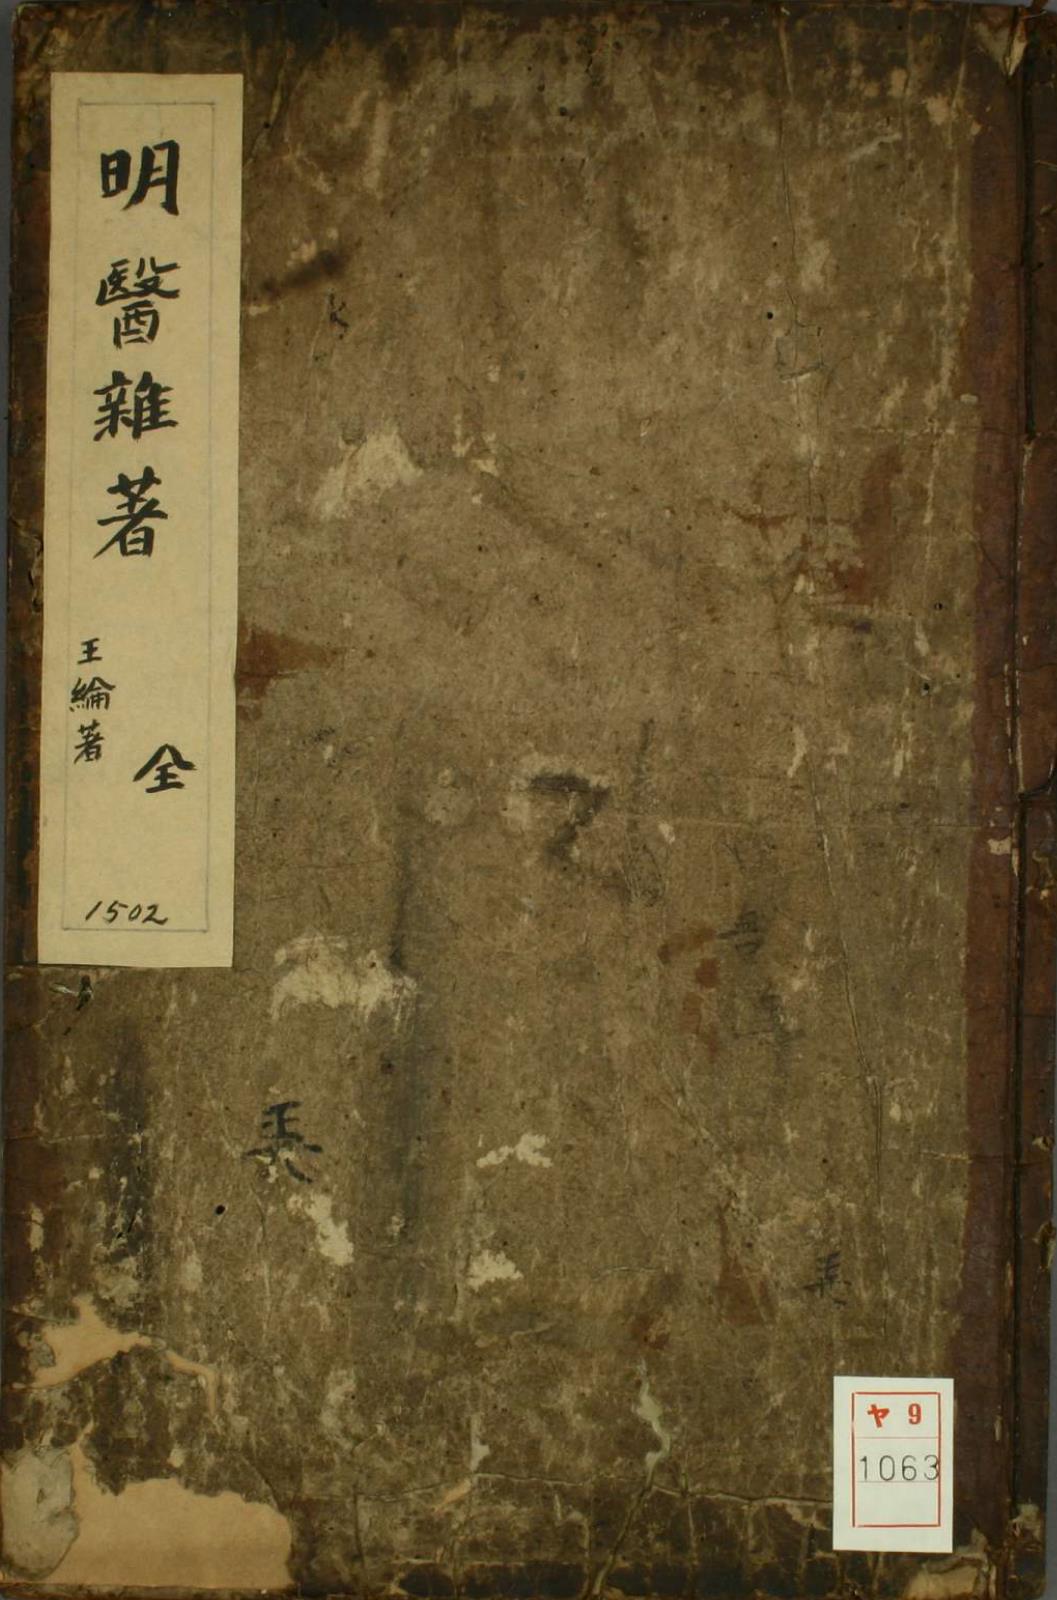 明醫雜著
王綸著
全
1502
ヤ 9
1063